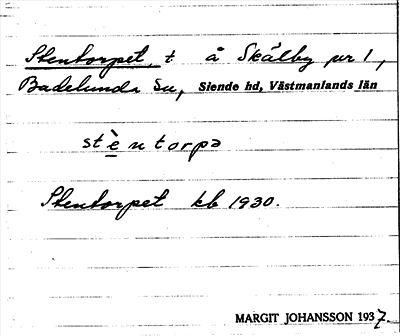 Stentorpet, t å Skälby nr 1,
Badelunda Sn, Siende hd, Västmanlands län
stè̱ntorpə
Stentorpet kb 1930.
MARGIT JOHANSSON 1937.